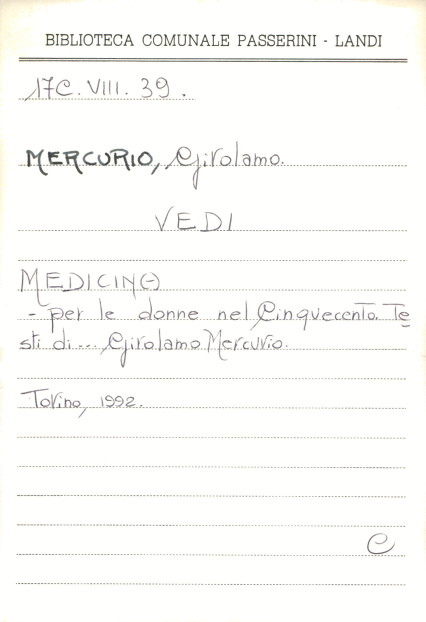 BIBLIOTECA COMUNALE PASSERINI - LANDI
17C. VIII. 39.
MERCURIO, Girolamo.
VEDI
MEDICIN(-)
- per le donne nel Cinquecento. Te
sti di... Girolamo Mercurio.
Torino, 1992.
C